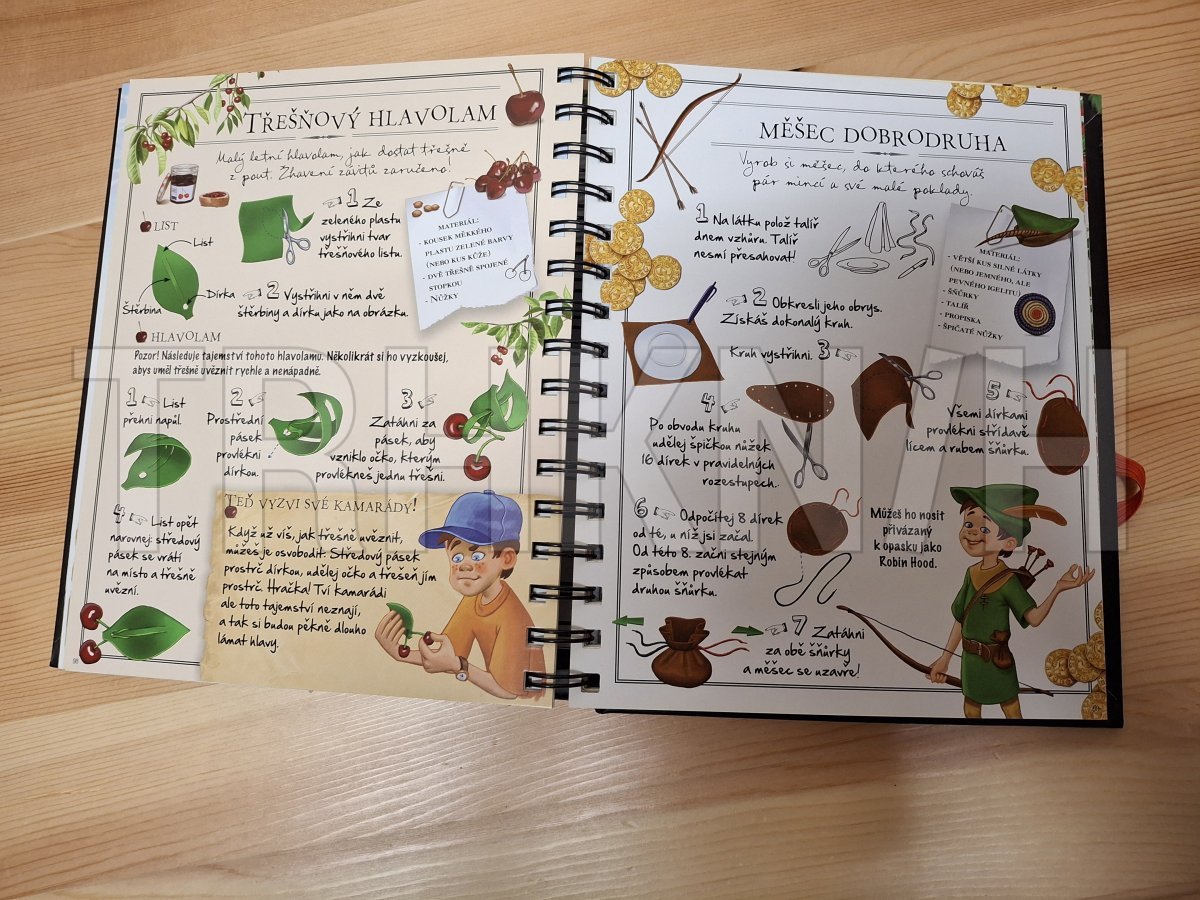 TŘEŠŇOVÝ HLAVOLAM
Malý letní hlavolam, jak dostat třešně
z pout. Žhavení závitů zaručeno!
LIST
List
Štěrbina
Dírka
1 Ze
zeleného plastu
vystřihni tvar
třešňového listu.
MATERIÁL:
- KOUSEK MĚKKÉHO
PLASTU ZELENÉ BARVY
(NEBO KUS KŮŽE)
- DVĚ TŘEŠNĚ SPOJENÉ
STOPKOU
- NŮŽKY
2 Vystřihni v něm dvě
štěrbiny a dírku jako na obrázku.
HLAVOLAM
Pozor! Následuje tajemství tohoto hlavolamu. Několikrát si ho vyzkoušej,
abys uměl třešně uvěznit rychle a nenápadně.
1 List
přehni napůl.
2
Prostřední
pásek
provlékni
dírkou.
3
Zatáhni za
pásek, aby
vzniklo očko, kterým
provlékneš jednu třešni.
4 List opět
narovnej: středový
pásek se vrátí
na místo a třešně
uvězní.
TEĎ VYZVI SVÉ KAMARÁDY!
Když už víš, jak třešně uvěznit,
můžeš je osvobodit. Středový pásek
prostrč dírkou, udělej očko a třešeň jím
prostrč. Hračka! Tví kamarádi
ale toto tajemství neznají,
a tak si budou pěkně dlouho
lámat hlavy.
MĚŠEC DOBRODRUHA
Vyrob si měšec, do kterého schováš
pár mincí a své malé poklady.
1 Na látku polož talíř
dnem vzhůru. Talíř
nesmí přesahovat!
MATERIÁL:
- VĚTŠÍ KUS SILNÉ LÁTKY
(NEBO JEMNÉHO, ALE
PEVNÉHO IGELITU)
- ŠŇŮRKY
- TALÍŘ
- PROPISKA
- ŠPIČATÉ NŮŽKY
2 Obkresli jeho obrys.
Získáš dokonalý kruh.
Kruh vystřihni. 3
4
Po obvodu kruhu
udělej špičkou nůžek
16 dírek v pravidelných
rozestupech.
5
Všemi dírkami
provlékni střídavě
lícem a rubem šňůrku.
6 Odpočítej 8 dírek
od té, u níž jsi začal.
Od této 8. začni stejným
způsobem provlékat
druhou šňůrku.
Můžeš ho nosit
přivázaný
k opasku jako
Robin Hood.
7 Zatáhni
za obě šňůrky
a měšec se uzavře!
TRHKNVH